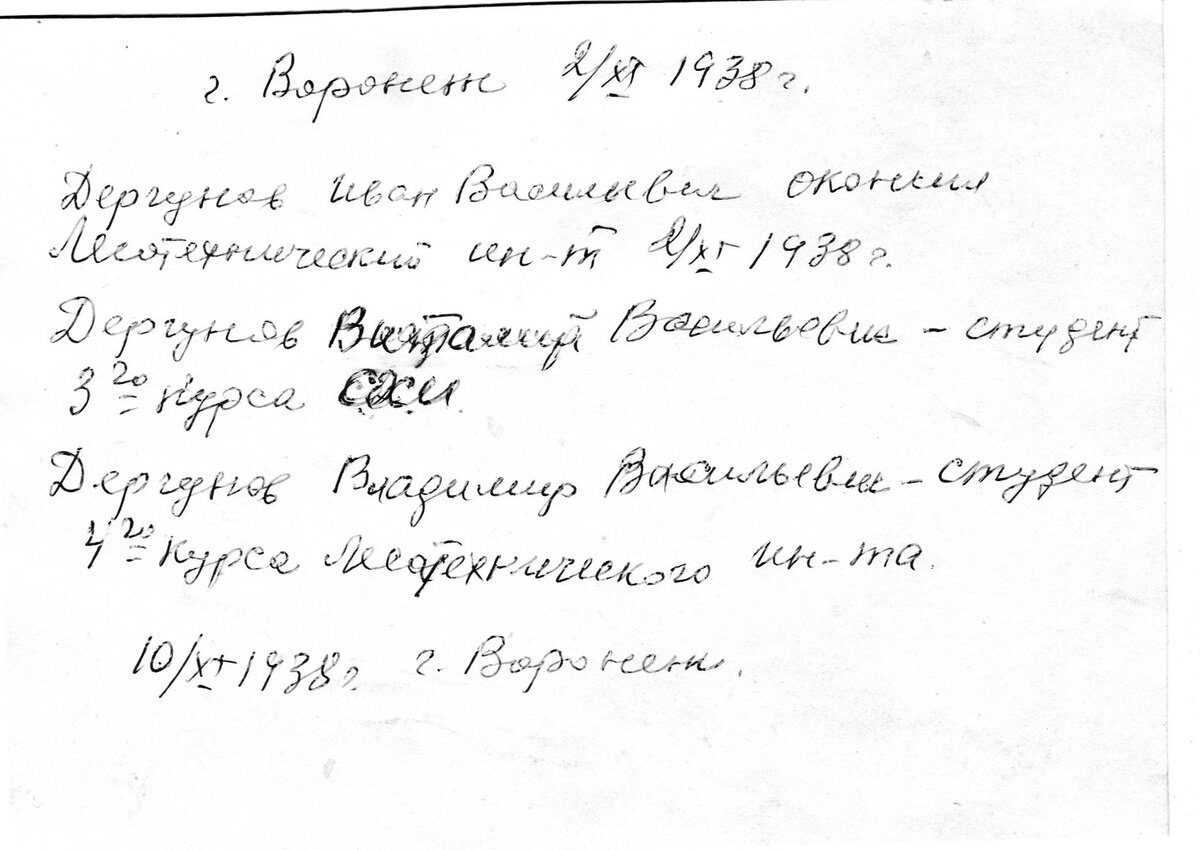 г. Воронеж 2/XI 1938 г.
Дергунов Иван Васильевич окончил
Лесотехнический ин-т 2/XI 1938 г.
Дергунов Виталий Васильевич – студент
3го курса СХИ.
Дергунов Владимир Васильевич – студент
4го курса Лесотехнического ин-та.
10/XI 1938 г. г. Воронеж.